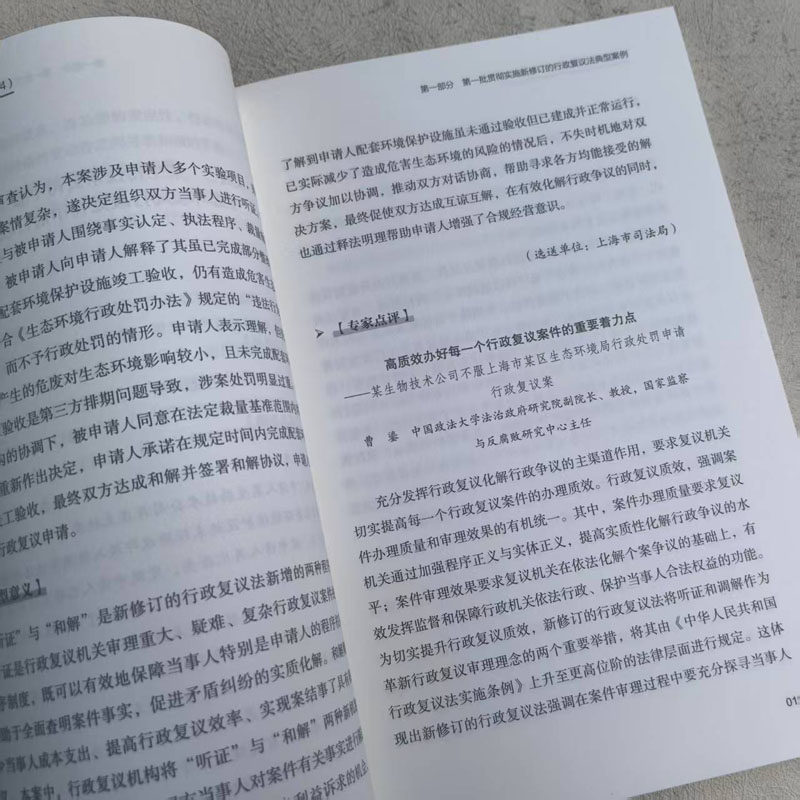 4)
审查认为，本案涉及申请人多个实验项目，
案情复杂，遂决定组织双方当事人进行听证，
与被申请人围绕事实认定、执法程序、裁量
被申请人向申请人解释了其虽已完成部分整
配套环境保护设施竣工验收，仍有造成危害生
合《生态环境行政处罚办法》规定的“违法行
而不予行政处罚的情形。申请人表示理解，但
产生的危废对生态环境影响较小，且未完成配
验收是第三方排期问题导致，涉案处罚明显过重
构的协调下，被申请人同意在法定裁量基准范围内
重新作出决定，申请人承诺在规定时间内完成配套
工验收，最终双方达成和解并签署和解协议，申请
行政复议申请。
型意义】
听证”与“和解”是新修订的行政复议法新增的两种
证是行政复议机关审理重大、疑难、复杂行政复议案件
序制度，既可以有效地保障当事人特别是申请人的程序
助于全面查明案件事实，促进矛盾纠纷的实质化解。和解
少当事人成本支出、提高行政复议效率、实现案结事了具有
本案中，行政复议机构将“听证”与“和解”两种新
双方当事人对案件有关事实进行
利益诉求的机会
第一部分 第一批贯彻实施新修订的行政复议法典型案例
了解到申请人配套环境保护设施虽未通过验收但已建成并正常运行，
已实际减少了造成危害生态环境的风险的情况后，不失时机地对双
方争议加以协调，推动双方对话协商，帮助寻求各方均能接受的解
决方案，最终促使双方达成互谅互解，在有效化解行政争议的同时，
也通过释法明理帮助申请人增强了合规经营意识。
（选送单位：上海市司法局）
【专家点评】
高质效办好每一个行政复议案件的重要着力点
——某生物技术公司不服上海市某区生态环境局行政处罚申请
行政复议案
曹 鎏 中国政法大学法治政府研究院副院长、教授，国家监察
与反腐败研究中心主任
充分发挥行政复议化解行政争议的主渠道作用，要求复议机关
切实提高每一个行政复议案件的办理质效。行政复议质效，强调案
件办理质量和审理效果的有机统一。其中，案件办理质量要求复议
机关通过加强程序正义与实体正义，提高实质性化解行政争议的水
平；案件审理效果要求复议机关在依法化解个案争议的基础上，有
效发挥监督和保障行政机关依法行政、保护当事人合法权益的功能。
为切实提升行政复议质效，新修订的行政复议法将听证和调解作为
革新行政复议审理理念的两个重要举措，将其由《中华人民共和国
行政复议法实施条例》上升至更高位阶的法律层面进行规定。这体
现出新修订的行政复议法强调在案件审理过程中要充分探寻当事人